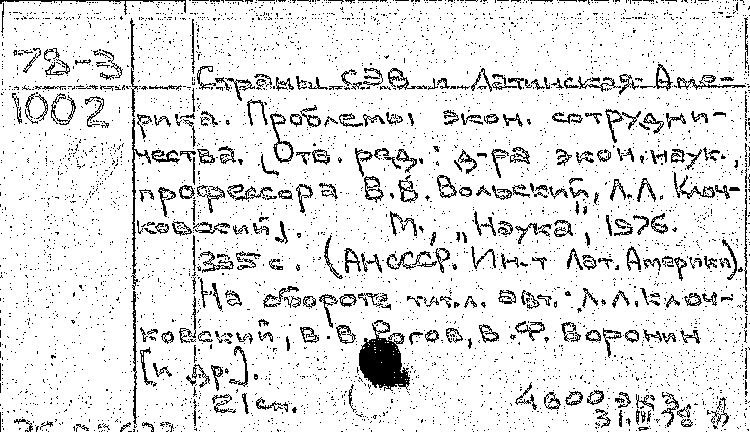 78-3
1002
Страны СЭВ и Латинская Аме-
рика. Проблемы экон. сотрудни-
чества. [Отв. ред.: д-ра экон. наук.,
профессора В.В. Вольский, Л.Л. Клоч-
ковский]. М., "Наука", 1976.
335 с. (АНСССР. Ин-т Лат. Америки).
На обороте тит.л. авт.: Л.Л. Клоч-
ковский, В.В. Рогов, В.Ф. Воронин
[и др.].
21 см. 4600 экз.
31.III 78